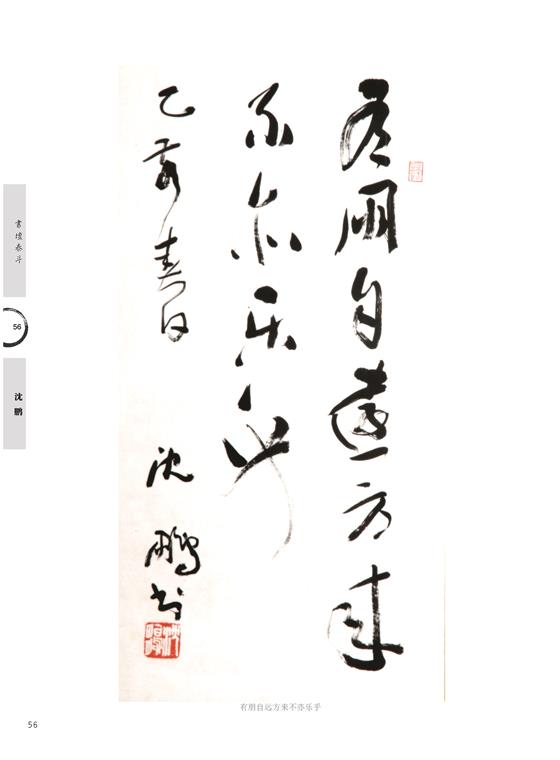 有朋自遠方来
不亦乐乎
乙亥春日
沈鹏书
書壇泰斗
56
沈鹏
有朋自远方来不亦乐乎
56